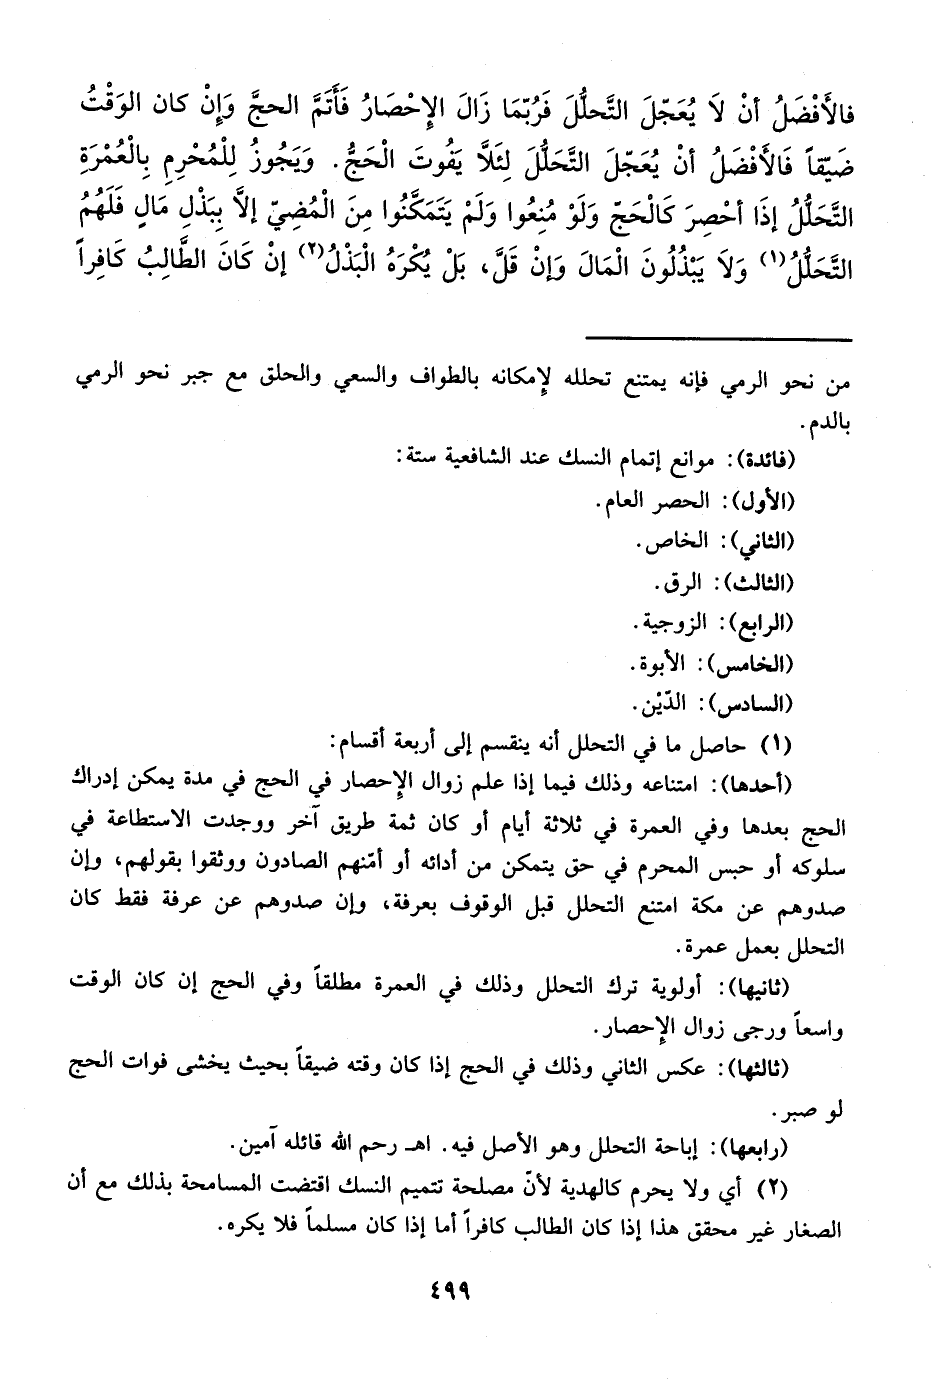 فالأَفْضَلُ أنْ لَا يُعَجّلَ التَّحلُّلَ فَرُبّمَا زَالَ الإِحْصَارُ فَأَتَمَّ الحجَّ وَإِنْ كان الوَقْتُ
ضَيّقاً فَالأَفْضَلُ أنْ يُعَجّلَ التَّحَلُّلَ لِئَلاَّ يَفُوتَ الْحَجُّ. وَيَجُوزُ لِلْمُحْرِمِ بِالْعُمْرَةِ
التَّحَلُّلُ إذَا أُحْصِرَ كَالْحَجّ وَلَوْ مُنِعُوا وَلَمْ يَتَمَكَّنُوا مِنَ الْمُضِيّ إلاَّ بِبَذْلِ مَالٍ فَلَهُمُ
التَّحَلُّلُ(١) وَلاَ يَبْذُلُونَ الْمَالَ وَإِنْ قَلَّ، بَلْ يُكْرَهُ الْبَذْلُ(٢) إنْ كَانَ الطَّالِبُ كَافِراً
من نحو الرمي فإنه يمتنع تحلله لإمكانه بالطواف والسعي والحلق مع جبر نحو الرمي
بالدم.
(فائدة): موانع إتمام النسك عند الشافعية ستة:
(الأول): الحصر العام.
(الثاني): الخاص.
(الثالث): الرق.
(الرابع): الزوجية.
(الخامس): الأبوة.
(السادس): الدّيْن.
(١) حاصل ما في التحلل أنه ينقسم إلى أربعة أقسام:
(أحدها): امتناعه وذلك فيما إذا علم زوال الإحصار في الحج في مدة يمكن إدراك
الحج بعدها وفي العمرة في ثلاثة أيام أو كان ثمة طريق آخر ووجدت الاستطاعة في
سلوكه أو حبس المحرم في حق يتمكن من أدائه أو أمّنهم الصادون ووثقوا بقولهم، وإن
صدوهم عن مكة امتنع التحلل قبل الوقوف بعرفة، وإن صدوهم عن عرفة فقط كان
التحلل بعمل عمرة.
(ثانيها): أولوية ترك التحلل وذلك في العمرة مطلقاً وفي الحج إن كان الوقت
واسعاً ورجى زوال الإحصار.
(ثالثها): عكس الثاني وذلك في الحج إذا كان وقته ضيقاً بحيث يخشى فوات الحج
لو صبر.
(رابعها): إباحة التحلل وهو الأصل فيه. اهـ رحم الله قائله آمين.
(٢) أي ولا يحرم كالهدية لأنّ مصلحة تتميم النسك اقتضت المسامحة بذلك مع أن
الصغار غير محقق هذا إذا كان الطالب كافراً أما إذا كان مسلماً فلا يكره.
٤٩٩